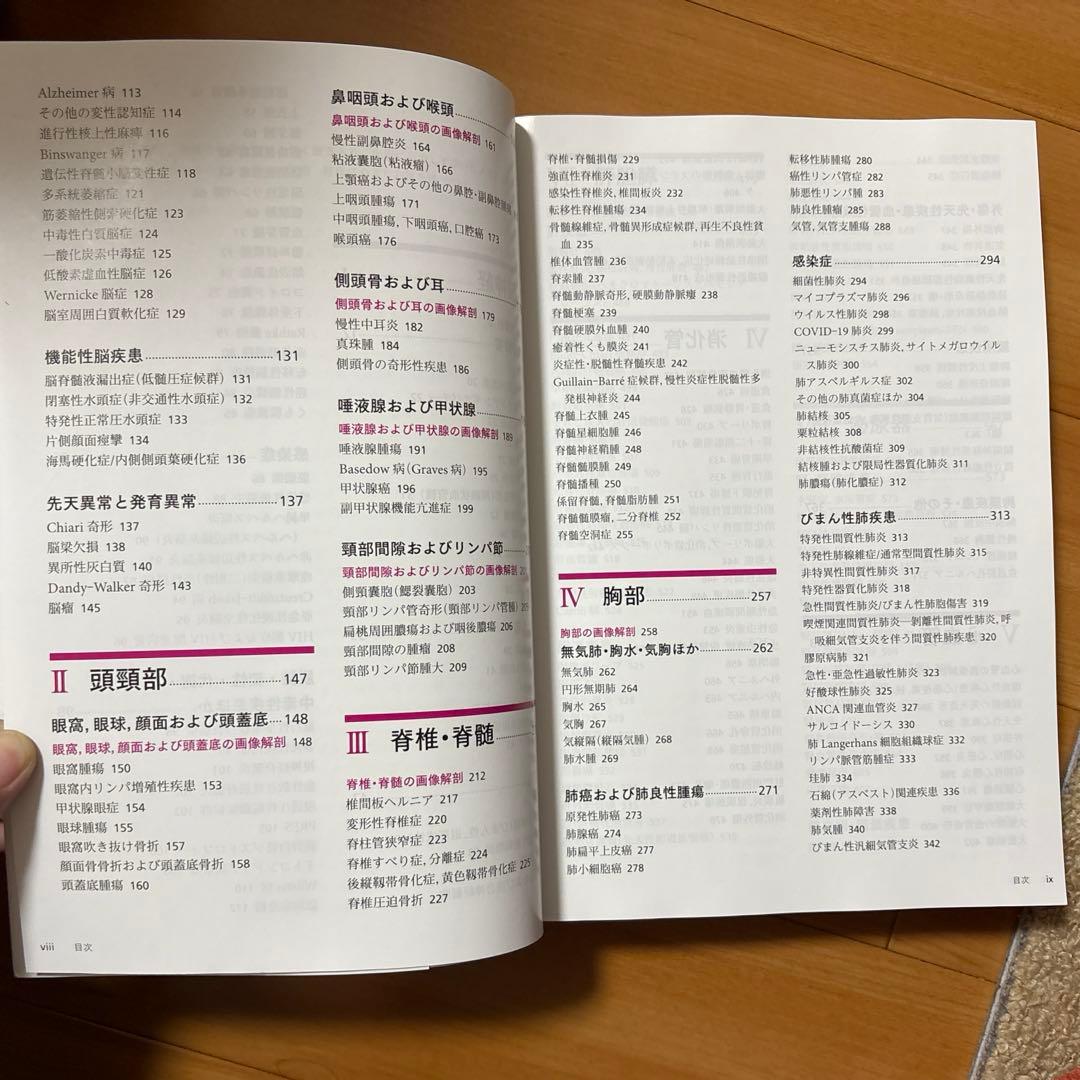 Alzheimer 病 113
その他の変性認知症 114
進行性核上性麻痺 116
Binswanger 病 117
遺伝性脊髄小脳変性症 118
多系統萎縮症 121
筋萎縮性側索硬化症 123
中毒性白質脳症 124
一酸化炭素中毒症 125
低酸素虚血性脳症 126
Wernicke 脳症 128
脳室周囲白質軟化症 129
機能性脳疾患 131
脳脊髄液漏出症(低髄圧症候群) 131
閉塞性水頭症(非交通性水頭症) 132
特発性正常圧水頭症 133
片側顔面痙攣 134
海馬硬化症/内側側頭葉硬化症 136
先天異常と発育異常 137
Chiari 奇形 137
脳梁欠損 138
異所性灰白質 140
Dandy-Walker 奇形 143
脳瘤 145
II 頭頸部 147
眼窩, 眼球, 顔面および頭蓋底 148
眼窩, 眼球, 顔面および頭蓋底の画像解剖 148
眼窩腫瘍 150
眼窩内リンパ増殖性疾患 153
甲状腺眼症 154
眼球腫瘍 155
眼窩吹き抜け骨折 157
顔面骨骨折および頭蓋底骨折 158
頭蓋底腫瘍 160
viii 目次
鼻咽頭および喉頭
鼻咽頭および喉頭の画像解剖 161
慢性副鼻腔炎 164
粘液嚢胞(粘液瘤) 166
上顎癌およびその他の鼻腔・副鼻腔腫瘍
上咽頭腫瘍 171
中咽頭腫瘍, 下咽頭癌, 口腔癌 173
喉頭癌 176
側頭骨および耳
側頭骨および耳の画像解剖 179
慢性中耳炎 182
真珠腫 184
側頭骨の奇形性疾患 186
唾液腺および甲状腺
唾液腺および甲状腺の画像解剖 189
唾液腺腫瘍 191
Basedow 病(Graves 病) 195
甲状腺癌 196
副甲状腺機能亢進症 199
頸部間隙およびリンパ節
頸部間隙およびリンパ節の画像解剖
側頸嚢胞(鰓裂嚢胞) 203
頸部リンパ管奇形(頸部リンパ管腫) 205
扁桃周囲膿瘍および咽後膿瘍 206
頸部間隙の腫瘤 208
頸部リンパ節腫大 209
III 脊椎・脊髄
脊椎・脊髄の画像解剖 212
椎間板ヘルニア 217
変形性脊椎症 220
脊柱管狭窄症 223
脊椎すべり症, 分離症 224
後縦靱帯骨化症, 黄色靱帯骨化症 225
脊椎圧迫骨折 227
脊椎・脊髄損傷 229
強直性脊椎炎 231
感染性脊椎炎, 椎間板炎 232
転移性脊椎腫瘍 234
骨髄線維症, 骨髄異形成症候群, 再生不良性貧
血 235
椎体血管腫 236
脊索腫 237
脊髄動静脈奇形, 硬膜動静脈瘻 238
脊髄梗塞 239
脊髄硬膜外血腫 240
癒着性くも膜炎 241
炎症性・脱髄性脊髄疾患 242
Guillain-Barré 症候群, 慢性炎症性脱髄性多
発根神経炎 244
脊髄上衣腫 245
脊髄星細胞腫 246
脊髄神経鞘腫 248
脊髄髄膜腫 249
脊髄播種 250
係留脊髄, 脊髄脂肪腫 251
脊髄髄膜瘤, 二分脊椎 252
脊髄空洞症 255
IV 胸部 257
胸部の画像解剖 258
無気肺・胸水・気胸ほか 262
無気肺 262
円形無気肺 264
胸水 265
気胸 267
気縦隔(縦隔気腫) 268
肺水腫 269
肺癌および肺良性腫瘍 271
原発性肺癌 273
肺腺癌 274
肺扁平上皮癌 277
肺小細胞癌 278
転移性肺腫瘍 280
癌性リンパ管症 282
肺悪性リンパ腫 283
肺良性腫瘤 285
気管, 気管支腫瘍 288
感染症 294
細菌性肺炎 294
マイコプラズマ肺炎 296
ウイルス性肺炎 298
COVID-19 肺炎 299
ニューモシスチス肺炎, サイトメガロウイル
ス肺炎 300
肺アスペルギルス症 302
その他の肺真菌症ほか 304
肺結核 305
粟粒結核 308
非結核性抗酸菌症 309
結核腫および限局性器質化肺炎 311
肺膿瘍(肺化膿症) 312
びまん性肺疾患 313
特発性間質性肺炎 313
特発性肺線維症/通常型間質性肺炎 315
非特異性間質性肺炎 317
特発性器質化肺炎 318
急性間質性肺炎/びまん性肺胞傷害 319
喫煙関連間質性肺炎—剝離性間質性肺炎, 呼
吸細気管支炎を伴う間質性肺疾患 320
膠原病肺 321
急性・亜急性過敏性肺炎 323
好酸球性肺炎 325
ANCA 関連血管炎 327
サルコイドーシス 330
肺 Langerhans 細胞組織球症 332
リンパ脈管筋腫症 333
珪肺 334
石綿(アスベスト)関連疾患 336
薬剤性肺障害 338
肺気腫 340
びまん性汎細気管支炎 342
目次 ix